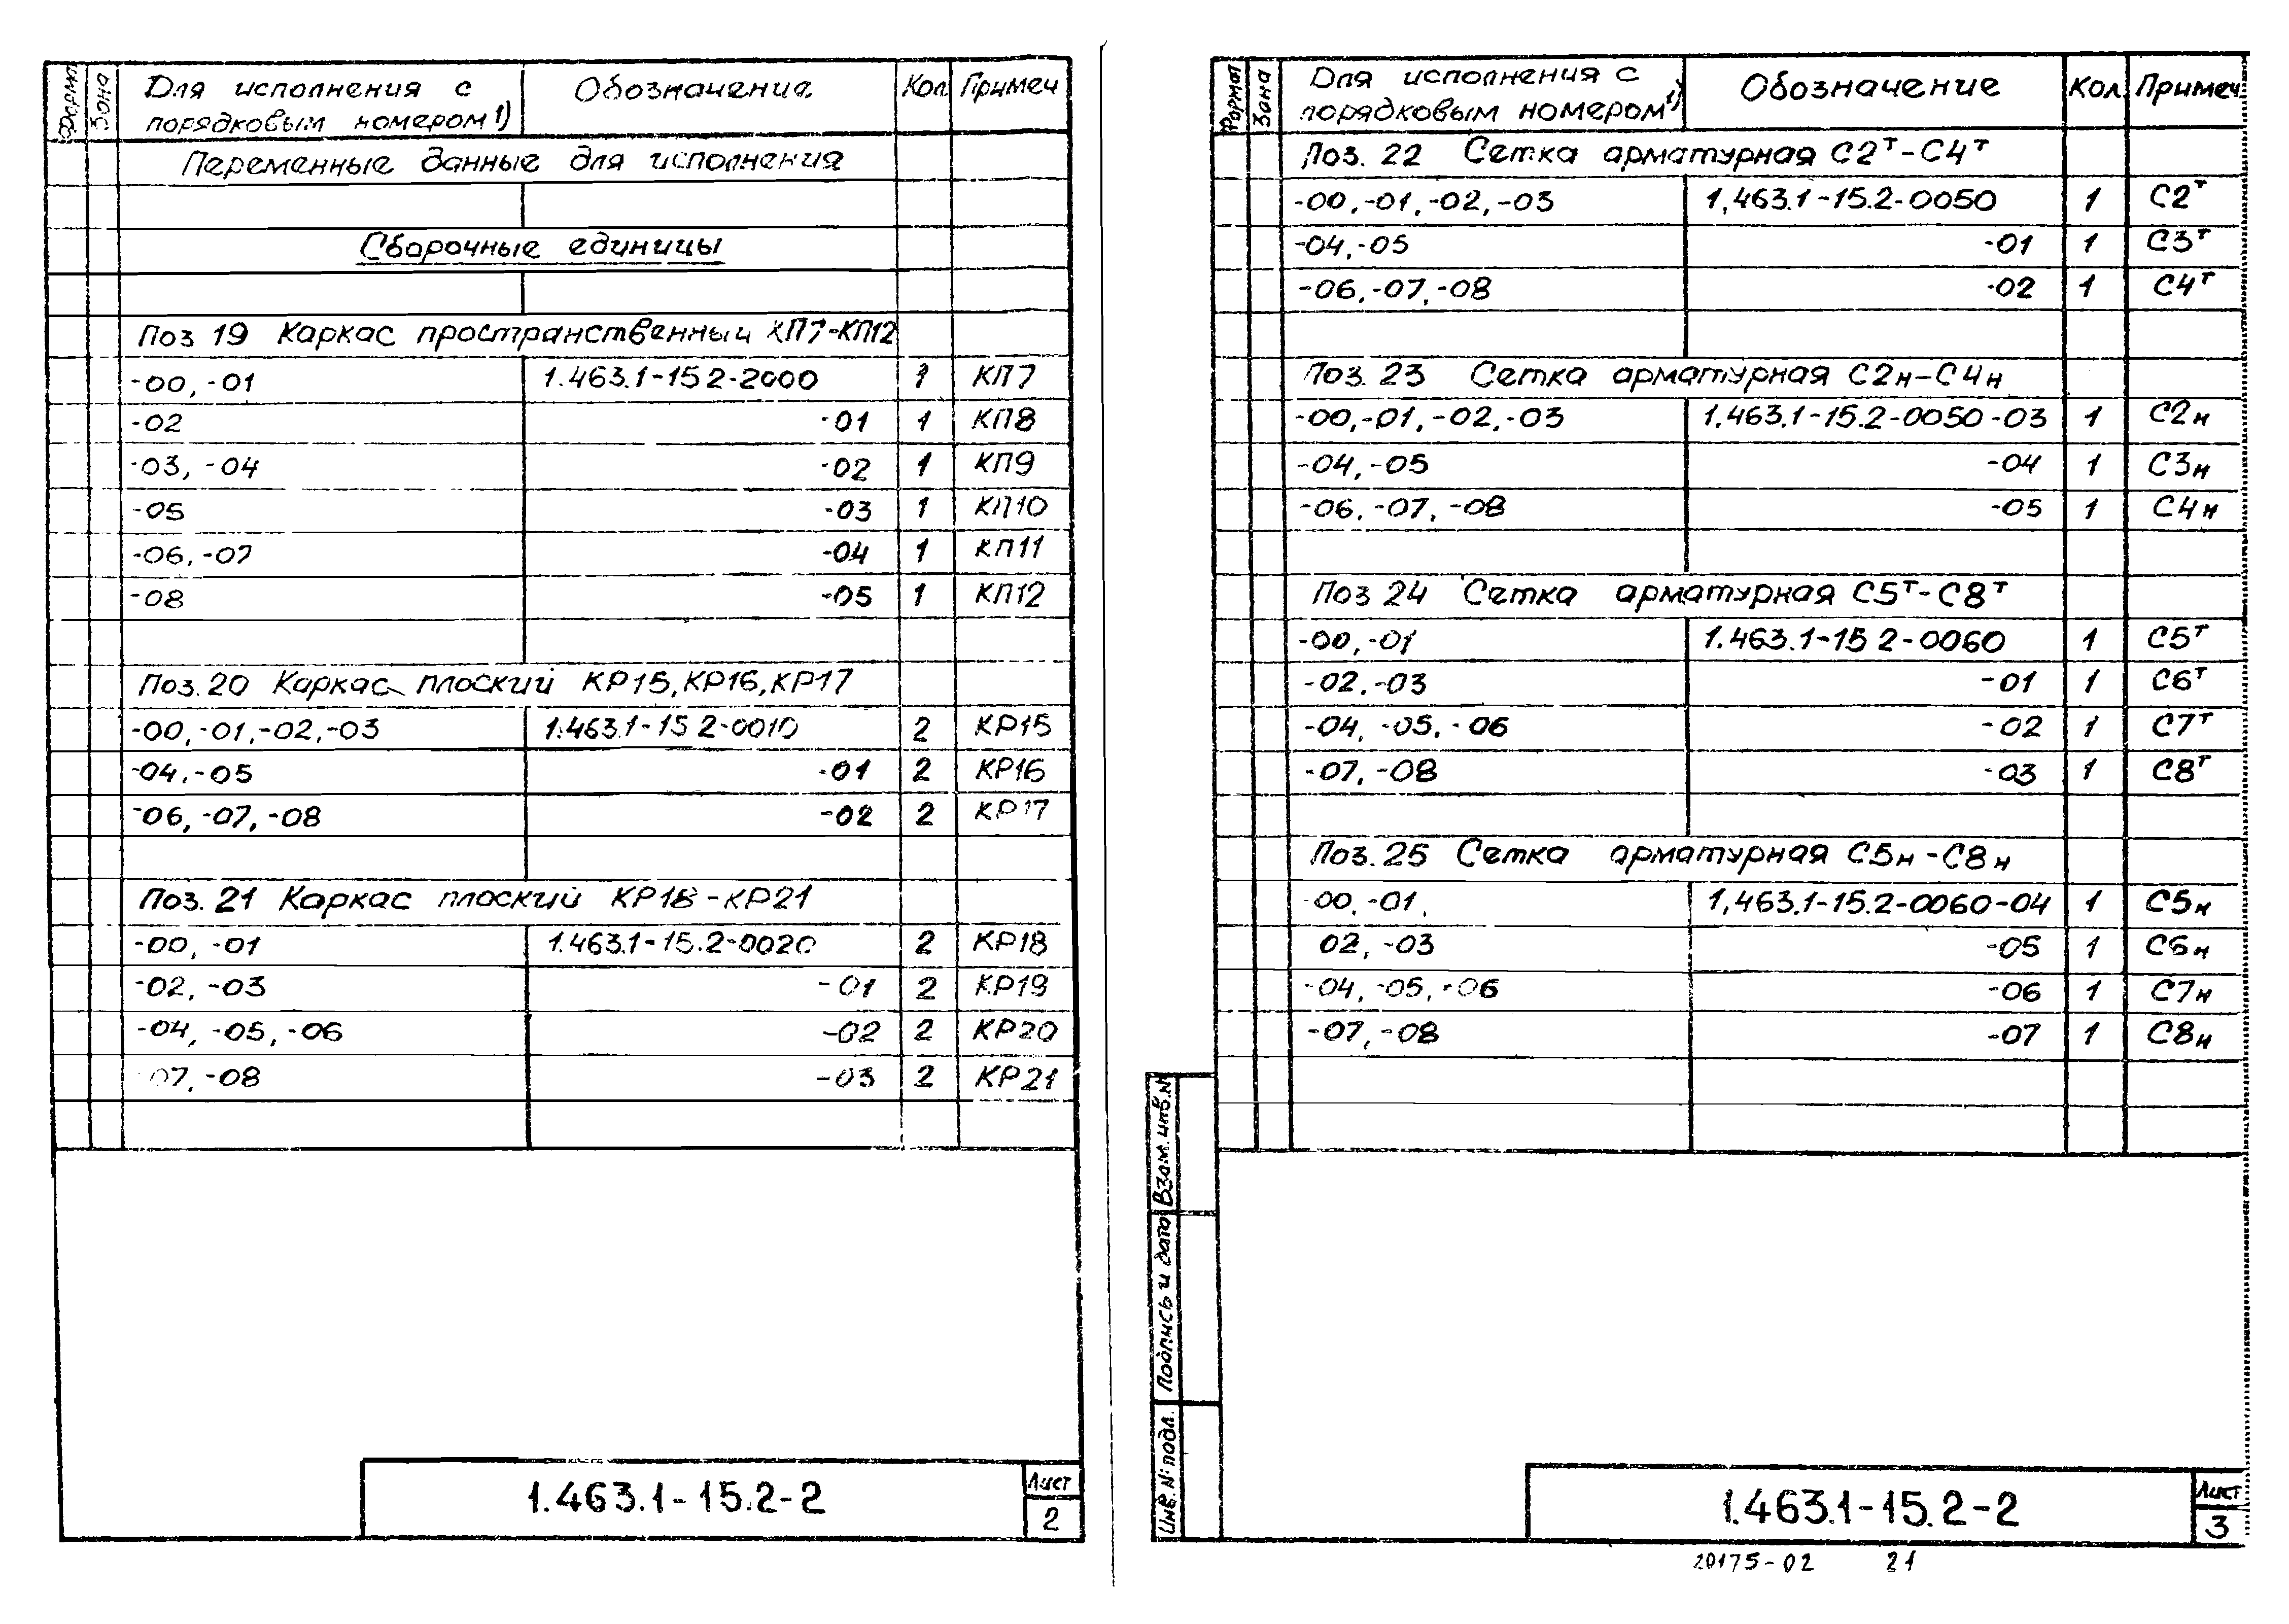 Формат Зона Для исполнения с порядковым номером 1) Обозначение Кол Примеч
Переменные данные для исполнения
Сборочные единицы
Поз 19 Каркас пространственный КП7-КП12
-00, -01 1.463.1-15 2-2000 1 КП7
-02 -01 1 КП8
-03, -04 -02 1 КП9
-05 -03 1 КП10
-06, -07 -04 1 КП11
-08 -05 1 КП12
Поз. 20 Каркас плоский КР15, КР16, КР17
-00, -01, -02, -03 1.463.1-15 2-0010 2 КР15
-04, -05 -01 2 КР16
-06, -07, -08 -02 2 КР17
Поз. 21 Каркас плоский КР18-КР21
-00, -01 1.463.1-15.2-0020 2 КР18
-02, -03 -01 2 КР19
-04, -05, -06 -02 2 КР20
-07, -08 -03 2 КР21
1.463.1-15.2-2
Лист
2
Формат Зона Для исполнения с порядковым номером 1) Обозначение Кол. Примеч.
Поз. 22 Сетка арматурная С2т-С4т
-00, -01, -02, -03 1.463.1-15.2-0050 1 С2т
-04, -05 -01 1 С3т
-06, -07, -08 -02 1 С4т
Поз. 23 Сетка арматурная С2н-С4н
-00, -01, -02, -03 1.463.1-15.2-0050-03 1 С2н
-04, -05 -04 1 С3н
-06, -07, -08 -05 1 С4н
Поз 24 Сетка арматурная С5т-С8т
-00, -01 1.463.1-15 2-0060 1 С5т
-02, -03 -01 1 С6т
-04, -05, -06 -02 1 С7т
-07, -08 -03 1 С8т
Поз. 25 Сетка арматурная С5н-С8н
-00, -01, 1.463.1-15.2-0060-04 1 С5н
02, -03 -05 1 С6н
-04, -05, -06 -06 1 С7н
-07, -08 -07 1 С8н
Взам. инв. №
Подпись и дата
Инв. № подл.
1.463.1-15.2-2
Лист
3
20175-02 21